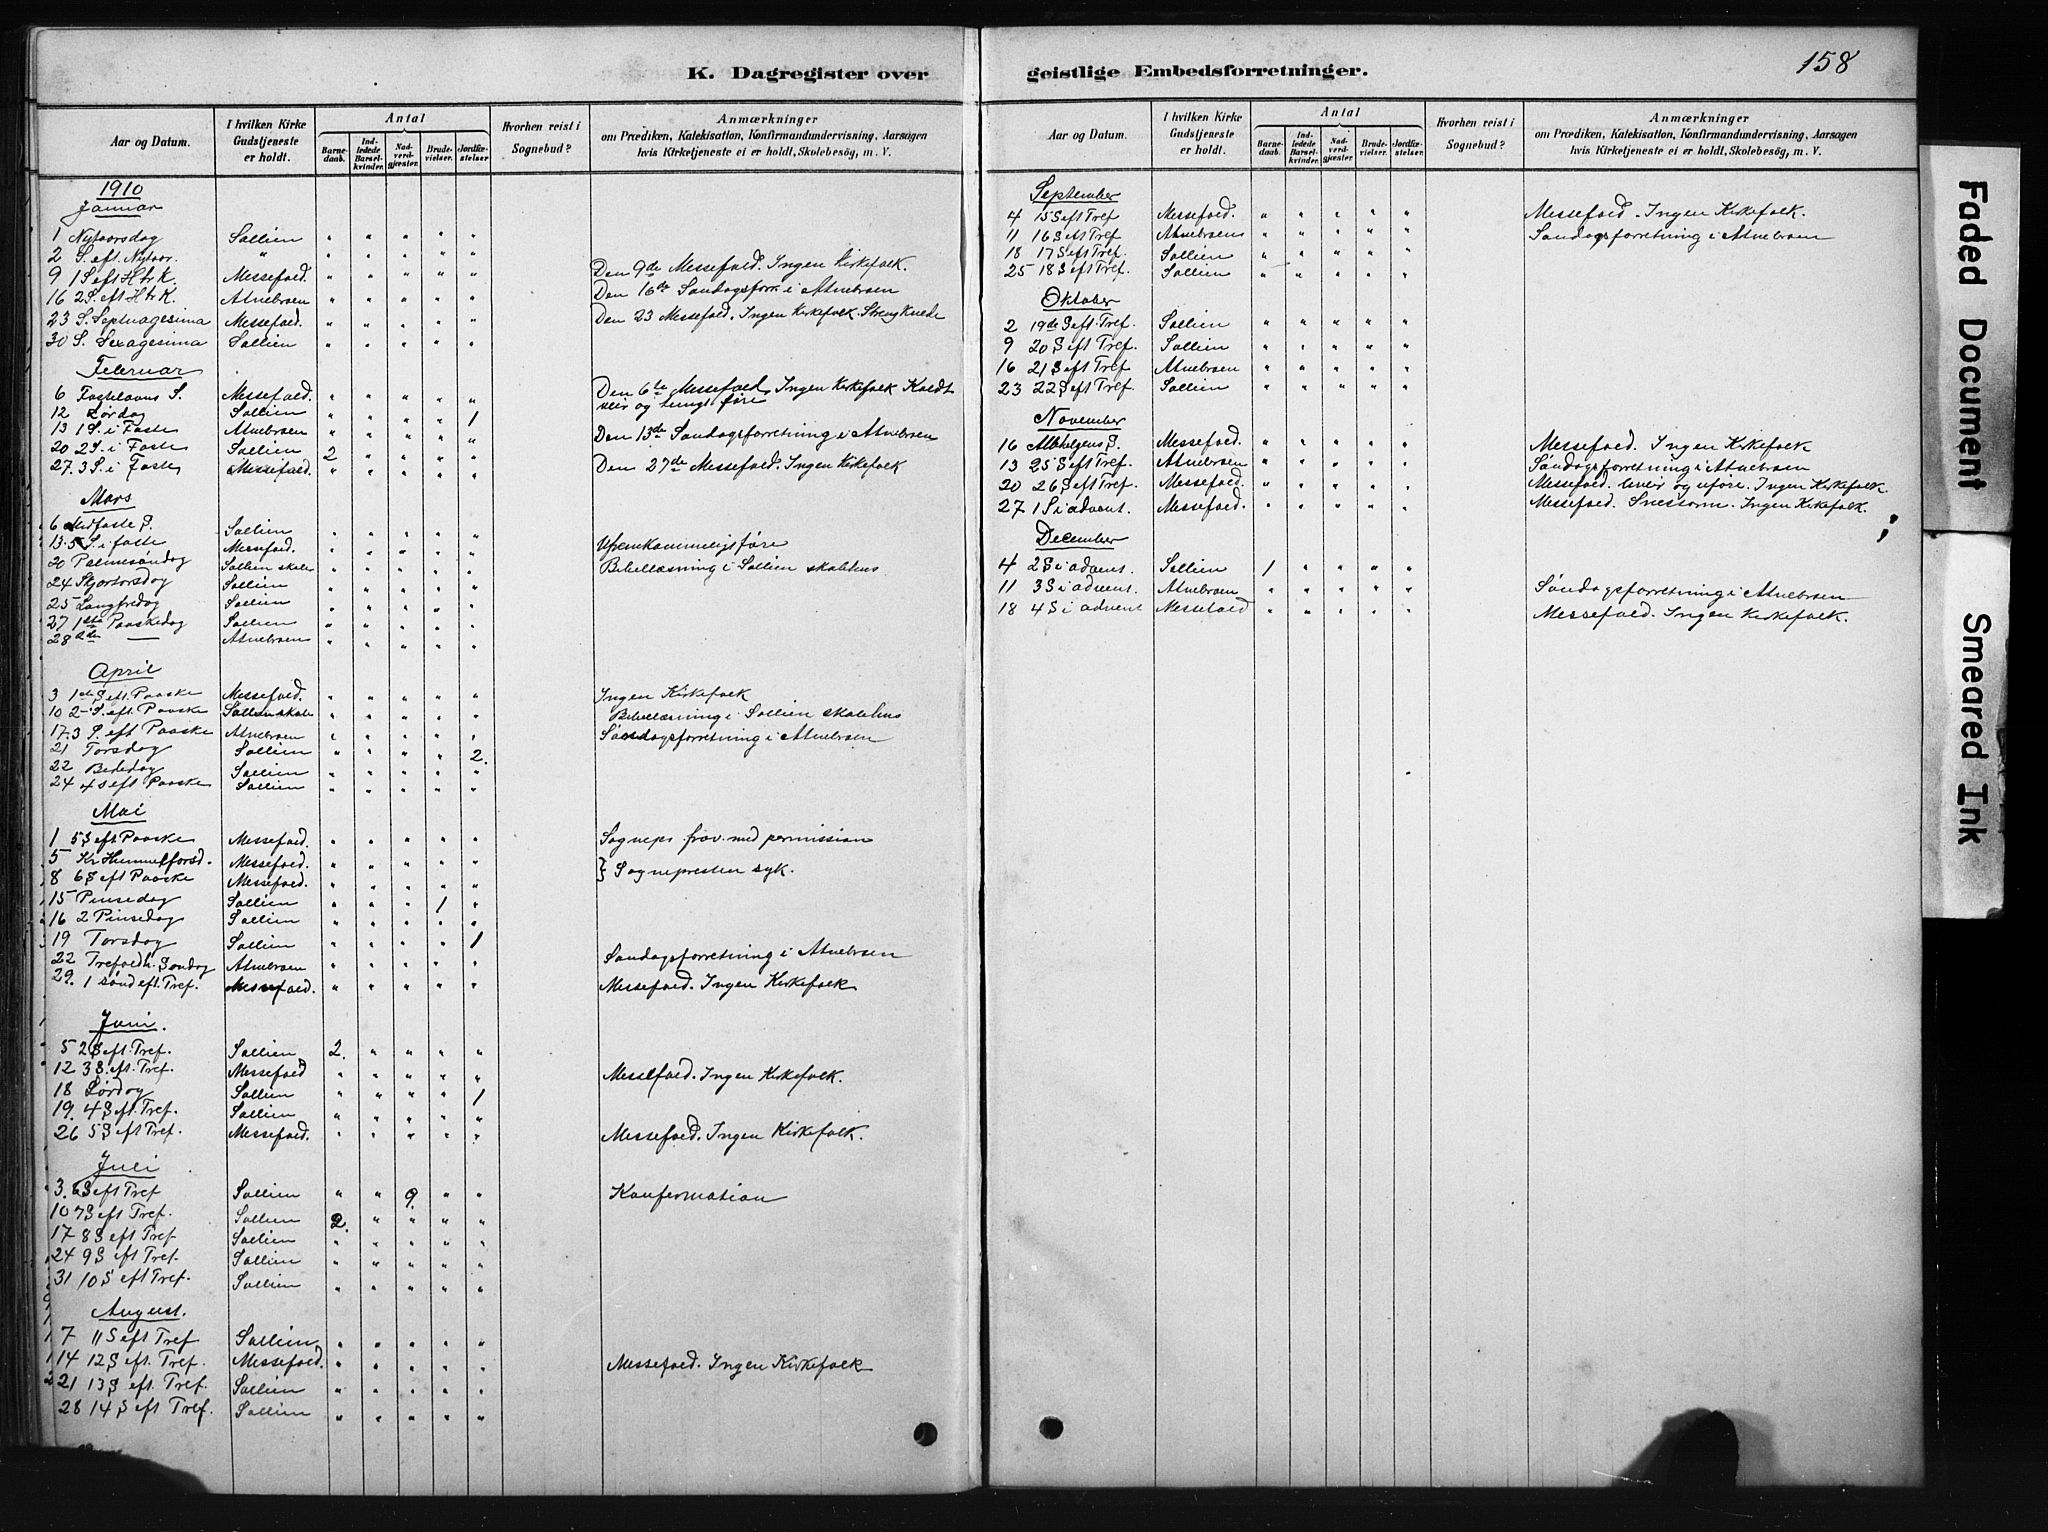 K. Dagregister over
Aar og Datum. I hvilken Kirke Gudstjeneste er holdt. Antal Barnedaab. Indledede Barselkvinder. Nadverdgjæster. Brudevielser. Jordfæstelser Hvorhen reist i Sognebud? Anmærkninger om Prædiken, Katekisation, Konfirmandundervisning, Aarsagen hvis Kirketjeneste ei er holdt, Skolebesøg, m. V.
1910
Januar
1 Nytaarsdag Sollien " " " " "
2 S. eft. Nytaar. " " " " " "
9 1 S eft H tr K. Messefald. " " " " " Den 9de Messefald. Ingen Kirkefolk.
16 2 S. eft H tr K. Atnebroen " " " " " Den 16de Søndagsforr i Atnebroen
23 S. Septuagesima Messefald. " " " " " Den 23 Messefald. Ingen Kirkefolk. Streng Kulde
30 S. Sexagesima Sollien " " " " "
Februar
6 Fastelavns S. Messefald. " " " " " Den 6te Messefald, Ingen Kirkefolk Koldt
veir og tungt føre
12 Lørdag Sollien " " " " 1
13 1 S. i Faste Atnebroen " " " " " Den 13de Søndagsforretning i Atnebroen
20 2 S. i Faste Sollien 2 " " " "
27. 3 S. i Faste Messefald. " " " " " Den 27de Messefald. Ingen Kirkefolk
Mars
6 Midfaste S. Sollien " " " " "
13 5 S. i faste Messefald. " " " " " Ufremkommeligt føre
20 Palmesøndag Sollien skoleh " " " " " Bibellæsning i Sollien skolehus
24 Skjærtorsdag Sollien " " " " "
25 Langfredag Sollien " " " " "
27 1ste Paaskedag Sollien " " " " "
28 2de — Atnebroen " " " " "
April
3 1ste S eft. Paaske Messefald. " " " " " Ingen Kirkefolk
10 2 S. eft. Paaske Sollien skole " " " " " Bibellæsning i Sollien skolehus
17. 3 S. eft Paaske Atnebroen " " " " " Søndagsforretning i Atnebroen
21 Torsdag Sollien " " " " 2.
22 Bededag Sollien " " " " "
24 4 S eft Paaske Sollien " " " " "
Mai
1 5 S eft Paaske Messefald. " " " " " Sognepr. frav. med permission
5 Kr Himmelfarsd. Messefald. " " " " "
8 6 S eft Paaske Messefald. " " " " " } Sognepresten syk.
15 Pinsedag Sollien " " " 1 "
16 2 Pinsedag Sollien " " " " "
19 Torsdag Sollien " " " " 1
22 Trefoldh. Søndag Atnebroen " " " " " Søndagsforretning i Atnebroen
29. 1 sønd eft. Tref. Messefald. " " " " " Messefald. Ingen Kirkefolk
Juni.
5 2 S eft. Tref. Sollien 2. " " " "
12 3 S. eft. Tref. Messefald " " " " " Messefald. Ingen Kirkefolk.
18 Lørdag Sollien " " " " 1
19. 4 S eft. Tref. Sollien " " " " "
26 5 S eft Tref. Messefald. " " " " " Messefald. Ingen Kirkefolk.
Juli
3. 6 S eft Tref Sollien " " 9. " " Konfirmation
10 7 S eft Tref. Sollien 2. " " " "
17 8 S eft Tref Sollien " " " " "
24 9 S eft Tref. Sollien " " " " "
31 10 S eft Tref. Sollien " " " " "
August.
7 11 S eft Tref Sollien " " " " "
14 12 S eft. Tref. Messefald. " " " " " Messefald. Ingen Kirkefolk
21 13 S eft. Tref. Sollien " " " " "
28 14 S eft Tref. Sollien " " " " "
geistlige Embedsforretninger.
158
Aar og Datum. I hvilken Kirke Gudstjeneste er holdt. Antal Barnedaab. Indledede Barselkvinder. Nadverdgjæster. Brudevielser. Jordfæstelser. Hvorhen reist i Sognebud? Anmærkninger om Prædiken, Katekisation, Konfirmandundervisning, Aarsagen hvis Kirketjeneste ei er holdt, Skolebesøg, m. V.
September
4 15 S eft Tref Messefald. " " " " " Messefald. Ingen Kirkefolk.
11 16 S eft Tref Atnebroen " " " " " Søndagsforretning i Atnebroen
18 17 S eft Tref. Sollien " " " " "
25 18 S eft Tref. Sollien " " " " "
Oktober
2 19de S eft. Tref. Sollien " " " " "
9 20 S eft Tref. Sollien " " " " "
16 21 S eft Tref Atnebroen " " " " "
23 22 S eft Tref. Sollien " " " " "
November
16 Allehelgens S. Messefald. " " " " " Messefald. Ingen Kirkefolk
13 25 S eft Tref. Atnebroen " " " " " Søndagsforretning i Atnebroen
20 26 S eft Tref. Messefald. " " " " " Messefald. Uveir og uføre. Ingen Kirkefolk.
27 1 S i advent. Messefald. " " " " " Messefald. Snestorm. Ingen Kirkefolk.
December
4 2 S i advent. Sollien 1 " " " "
11 3 S i advent. Atnebroen " " " " " Søndagsforretning i Atnebroen
18 4 S i advent Messefald " " " " " Messefald. Ingen Kirkefolk.
Faded Document
Smeared Ink